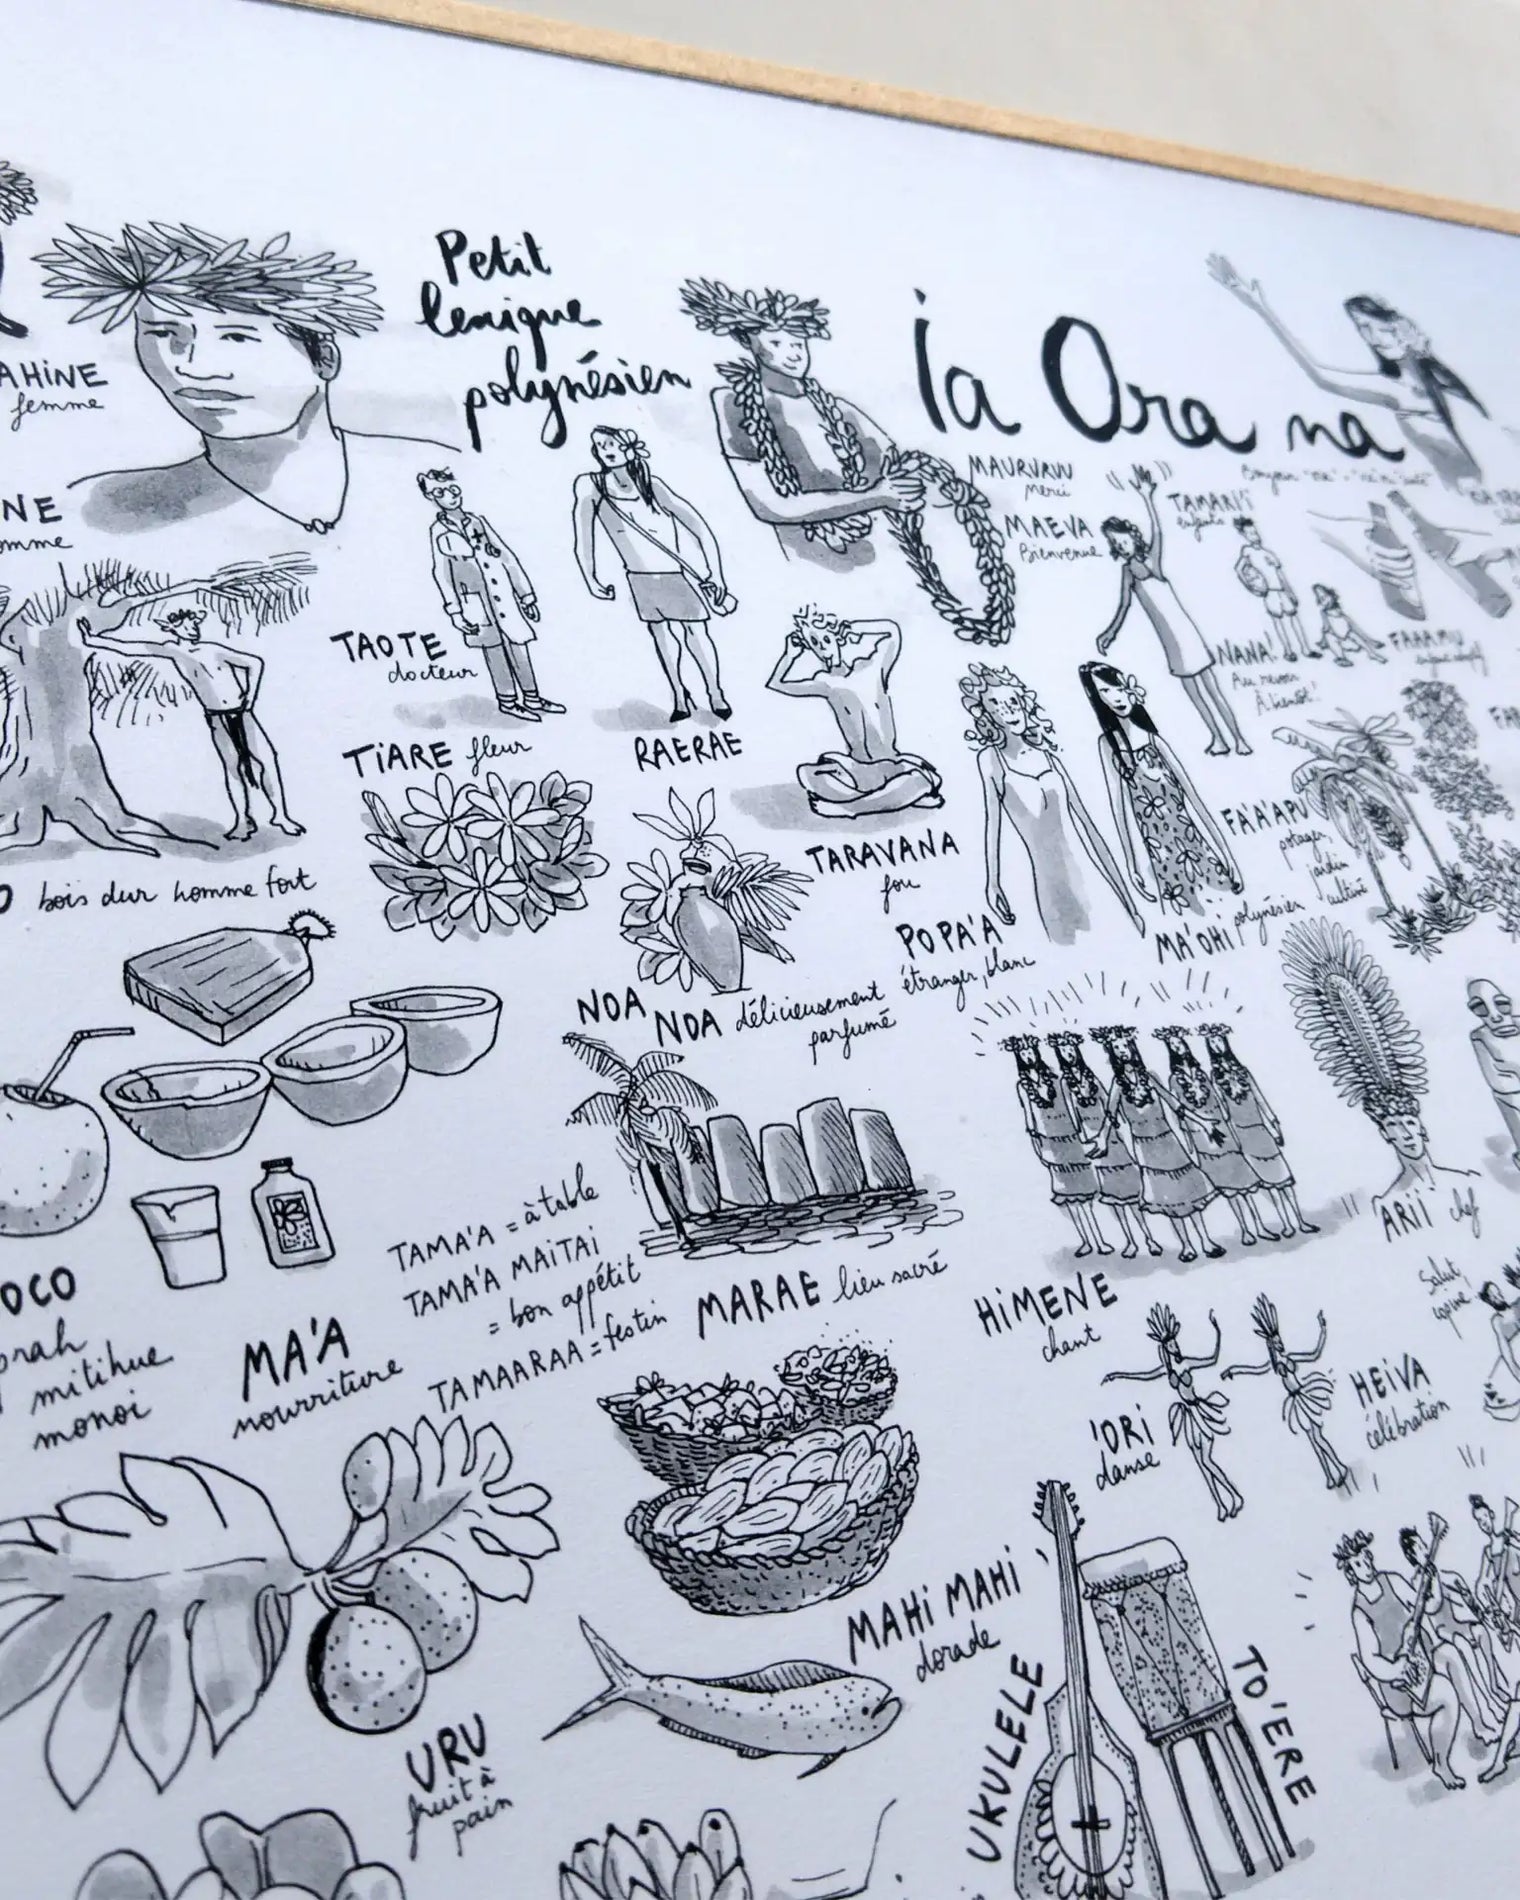 Petit
lexique
polynésien
ia Ora na
AHINE
femme
NE
omme
MAURURUU
Merci
MAEVA
Bienvenue
TAMARI'I
enfants
NANA!
Au revoir
À bientôt!
FAAAMU
TAOTE
docteur
TIARE fleur
RAERAE
TARAVANA
fou
FA'A'APU
potager,
jardin
cultivé
POPA'A
étranger, blanc
MA'OHI polynésien
O bois dur homme fort
NOA NOA délicieusement
parfumé
ARII chef
TAMA'A = à table
TAMA'A MAITAI
= bon appétit
TAMAARAA = festin
MARAE lieu sacré
HIMENE
chant
Salut,
OCO
prah
mitihue
monoi
MA'A
nourriture
'ORI
danse
HEIVA
célébration
MAHI MAHI
dorade
UKULELE
TO'ERE
URU
fruit à
pain